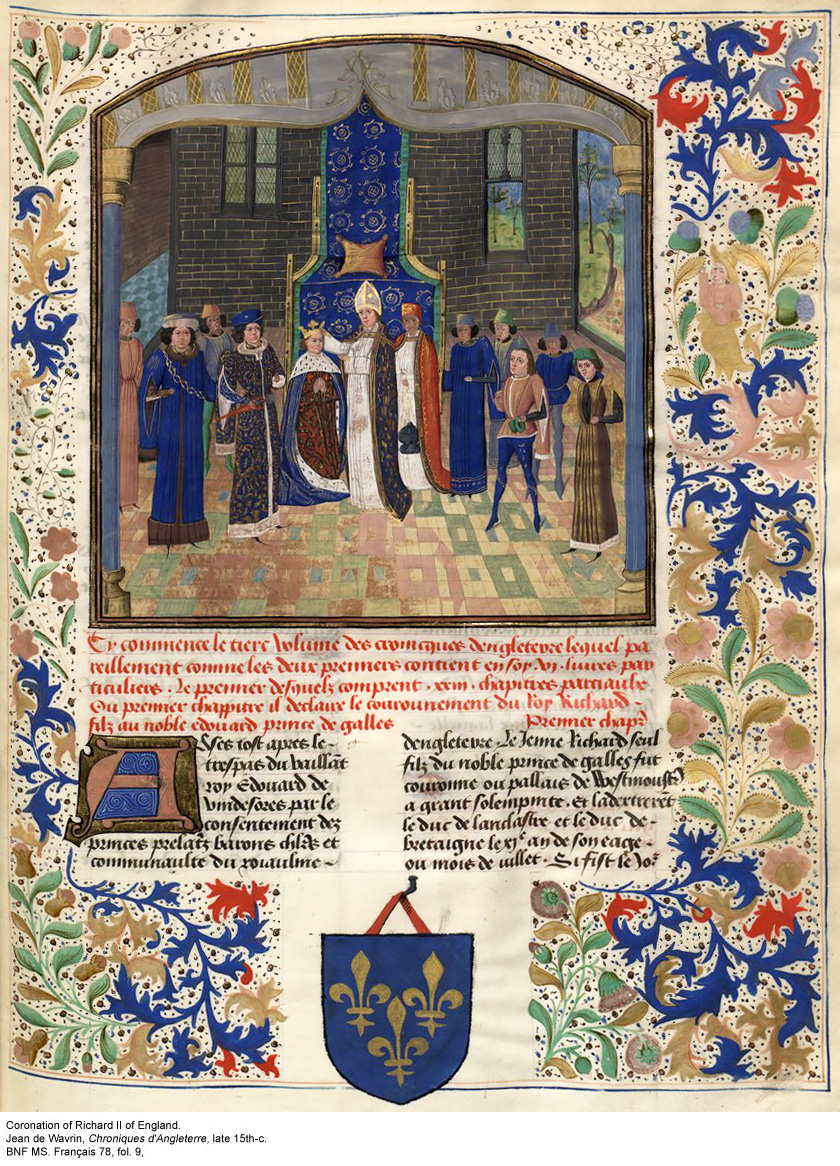 Cy commence le tierc volume des cronicques dengleterre lequel pa
reillement comme les deux premiers contient en soy .vi. livres par
ticuliers. Le premier desquelz comprent .xxiii. chapitres parciaulx
Ou premier chappitre il declaire le couronnement du Roy Richard
filz au noble edouard prince de galles Premier chapr̃
Asses tost apres le
trespas du vaillãt
roy Edouard de
vindesores par le
consentement des
princes prelatz barons chlr̃s et
communaulte du roiaulme
dengleterre. Le Jenne Richard seul
filz du noble prince de galles fut
couronne ou pallais de Westmoustr̃
a grant solempnite. et ladextreret
le duc de lanclastre et le duc de
bretaigne le xiᵉ an de son eage
ou mois de iullet. Si fist le Jor̃
Coronation of Richard II of England.
Jean de Wavrin, Chroniques d'Angleterre, late 15th-c.
BNF MS. Français 78, fol. 9,